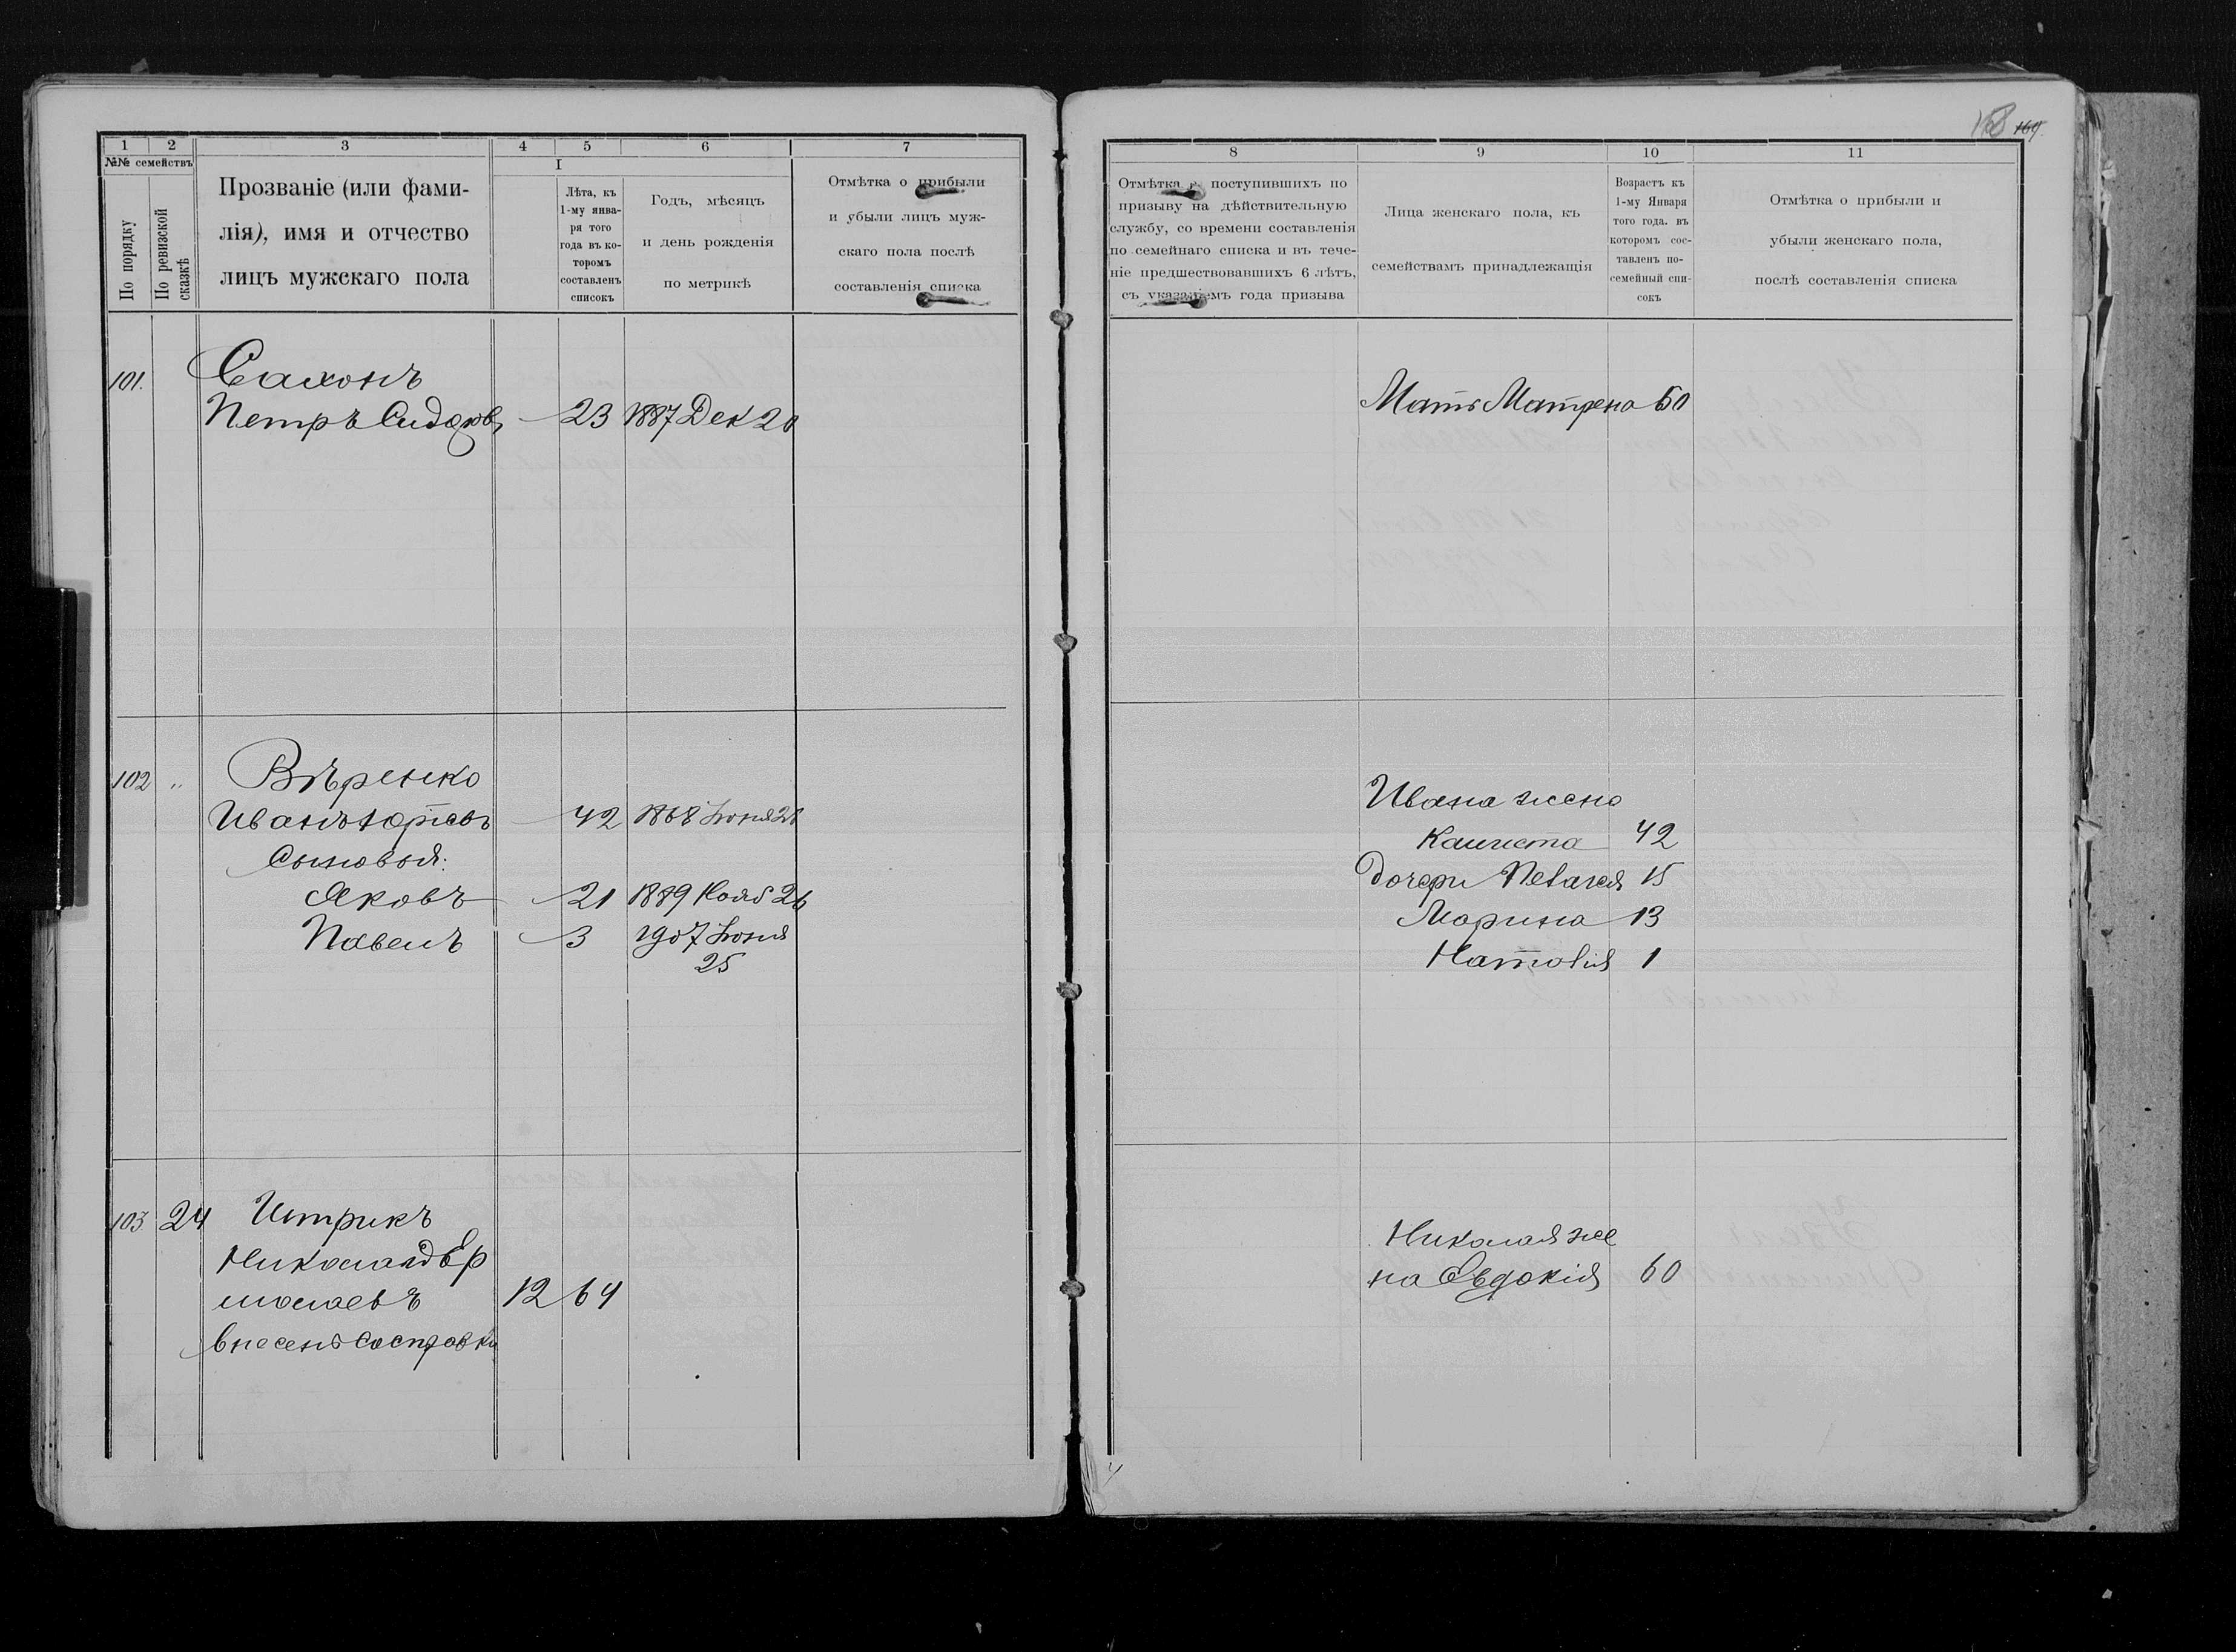 1 2 3 4 5 6 7
№№ семействъ
По порядку
По ревизской сказкѣ
Прозваніе (или фами-
лія), имя и отчество
лицъ мужскаго пола
I
Лѣта, къ
1-му янва-
ря того
года въ ко-
торомъ
составленъ
списокъ
Годъ, мѣсяцъ
и день рожденія
по метрикѣ
Отмѣтка о прибыли
и убыли лицъ муж-
скаго пола послѣ
составленія списка
101. Сахонъ
Петръ Сидоровъ 23 1887 Дек 20
102 " Вѣренко
Иванъ 42 1868 Іюня 28
Сыновья:
Яковъ 21 1889 Нояб 26
Павелъ 3 1907 Іюня
25
103 24
Николай Ер
молаевъ 12 64
внесенъ со справки
169
8 9 10 11
Отмѣтка о поступившихъ по
призыву на дѣйствительную
службу, со времени составленія
по семейнаго списка и въ тече-
ніе предшествовавшихъ 6 лѣтъ,
съ указаніемъ года призыва
Лица женскаго пола, къ
семействамъ принадлежащія
Возрастъ къ
1-му Января
того года. въ
которомъ сос-
тавленъ по-
семейный спи-
сокъ
Отмѣтка о прибыли и
убыли женскаго пола,
послѣ составленія списка
Мать Матрена 60
Ивана жена
42
дочери Пелагея 15
Марина 13
Наталія 1
Николая же
на Евдокія 60